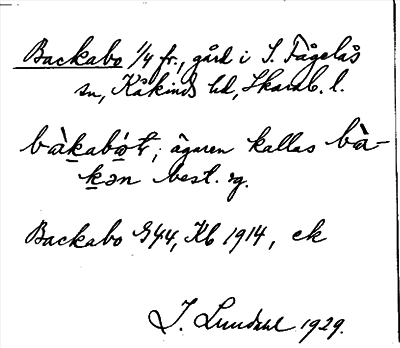 Backabo 1/4 fr., gård i S. Fågelås
sn, Kåkinds hd, Skarab. l.
bàkabót; ägaren kallas bà-
kən best. sg.
Backabo G44, Kb 1914, ek
J. Lundahl 1929.